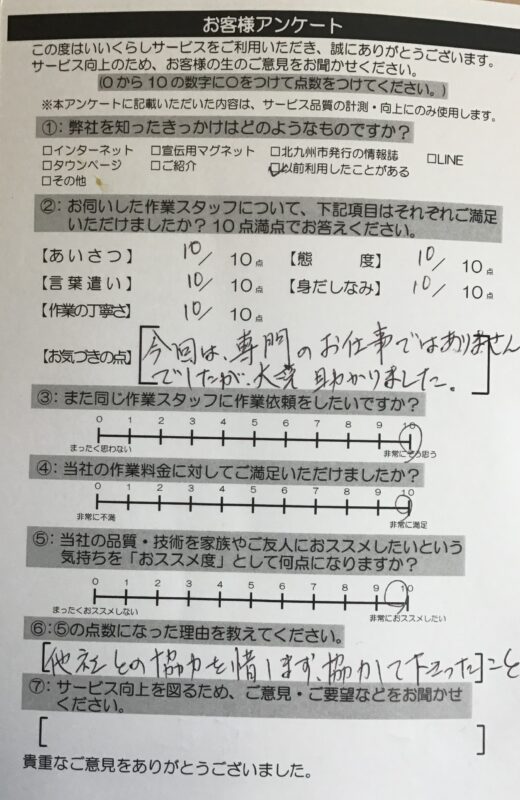 お客様アンケート
この度はいいくらしサービスをご利用いただき、誠にありがとうございます。
サービス向上のため、お客様の生のご意見をお聞かせください。
(0から10の数字に○をつけて点数をつけてください。)
※本アンケートに記載いただいた内容は、サービス品質の計測・向上にのみ使用します。
①：弊社を知ったきっかけはどのようなものですか？
□インターネット □宣伝用マグネット □北九州市発行の情報誌 □LINE
□タウンページ □ご紹介 □以前利用したことがある
□その他
②：お伺いした作業スタッフについて、下記項目はそれぞれご満足
いただけましたか？10点満点でお答えください。
【あいさつ】 10/10点 【態度】 10/10点
【言葉遣い】 10/10点 【身だしなみ】 10/10点
【作業の丁寧さ】 10/10点
【お気づきの点】 [今回は、専門のお仕事ではありません
でしたが、大変助かりました。]
③：また同じ作業スタッフに作業依頼をしたいですか？
0 1 2 3 4 5 6 7 8 9 10
まったく思わない 非常にそう思う
④：当社の作業料金に対してご満足いただけましたか？
0 1 2 3 4 5 6 7 8 9 10
非常に不満 非常に満足
⑤：当社の品質・技術を家族やご友人におススメしたいという
気持ちを「おススメ度」として何点になりますか？
0 1 2 3 4 5 6 7 8 9 10
まったくおススメしない 非常におススメしたい
⑥：⑤の点数になった理由を教えてください。
[他社との協力を惜します、協力して下さった]こと
⑦：サービス向上を図るため、ご意見・ご要望などをお聞かせ
ください。
[ ]
貴重なご意見をありがとうございました。